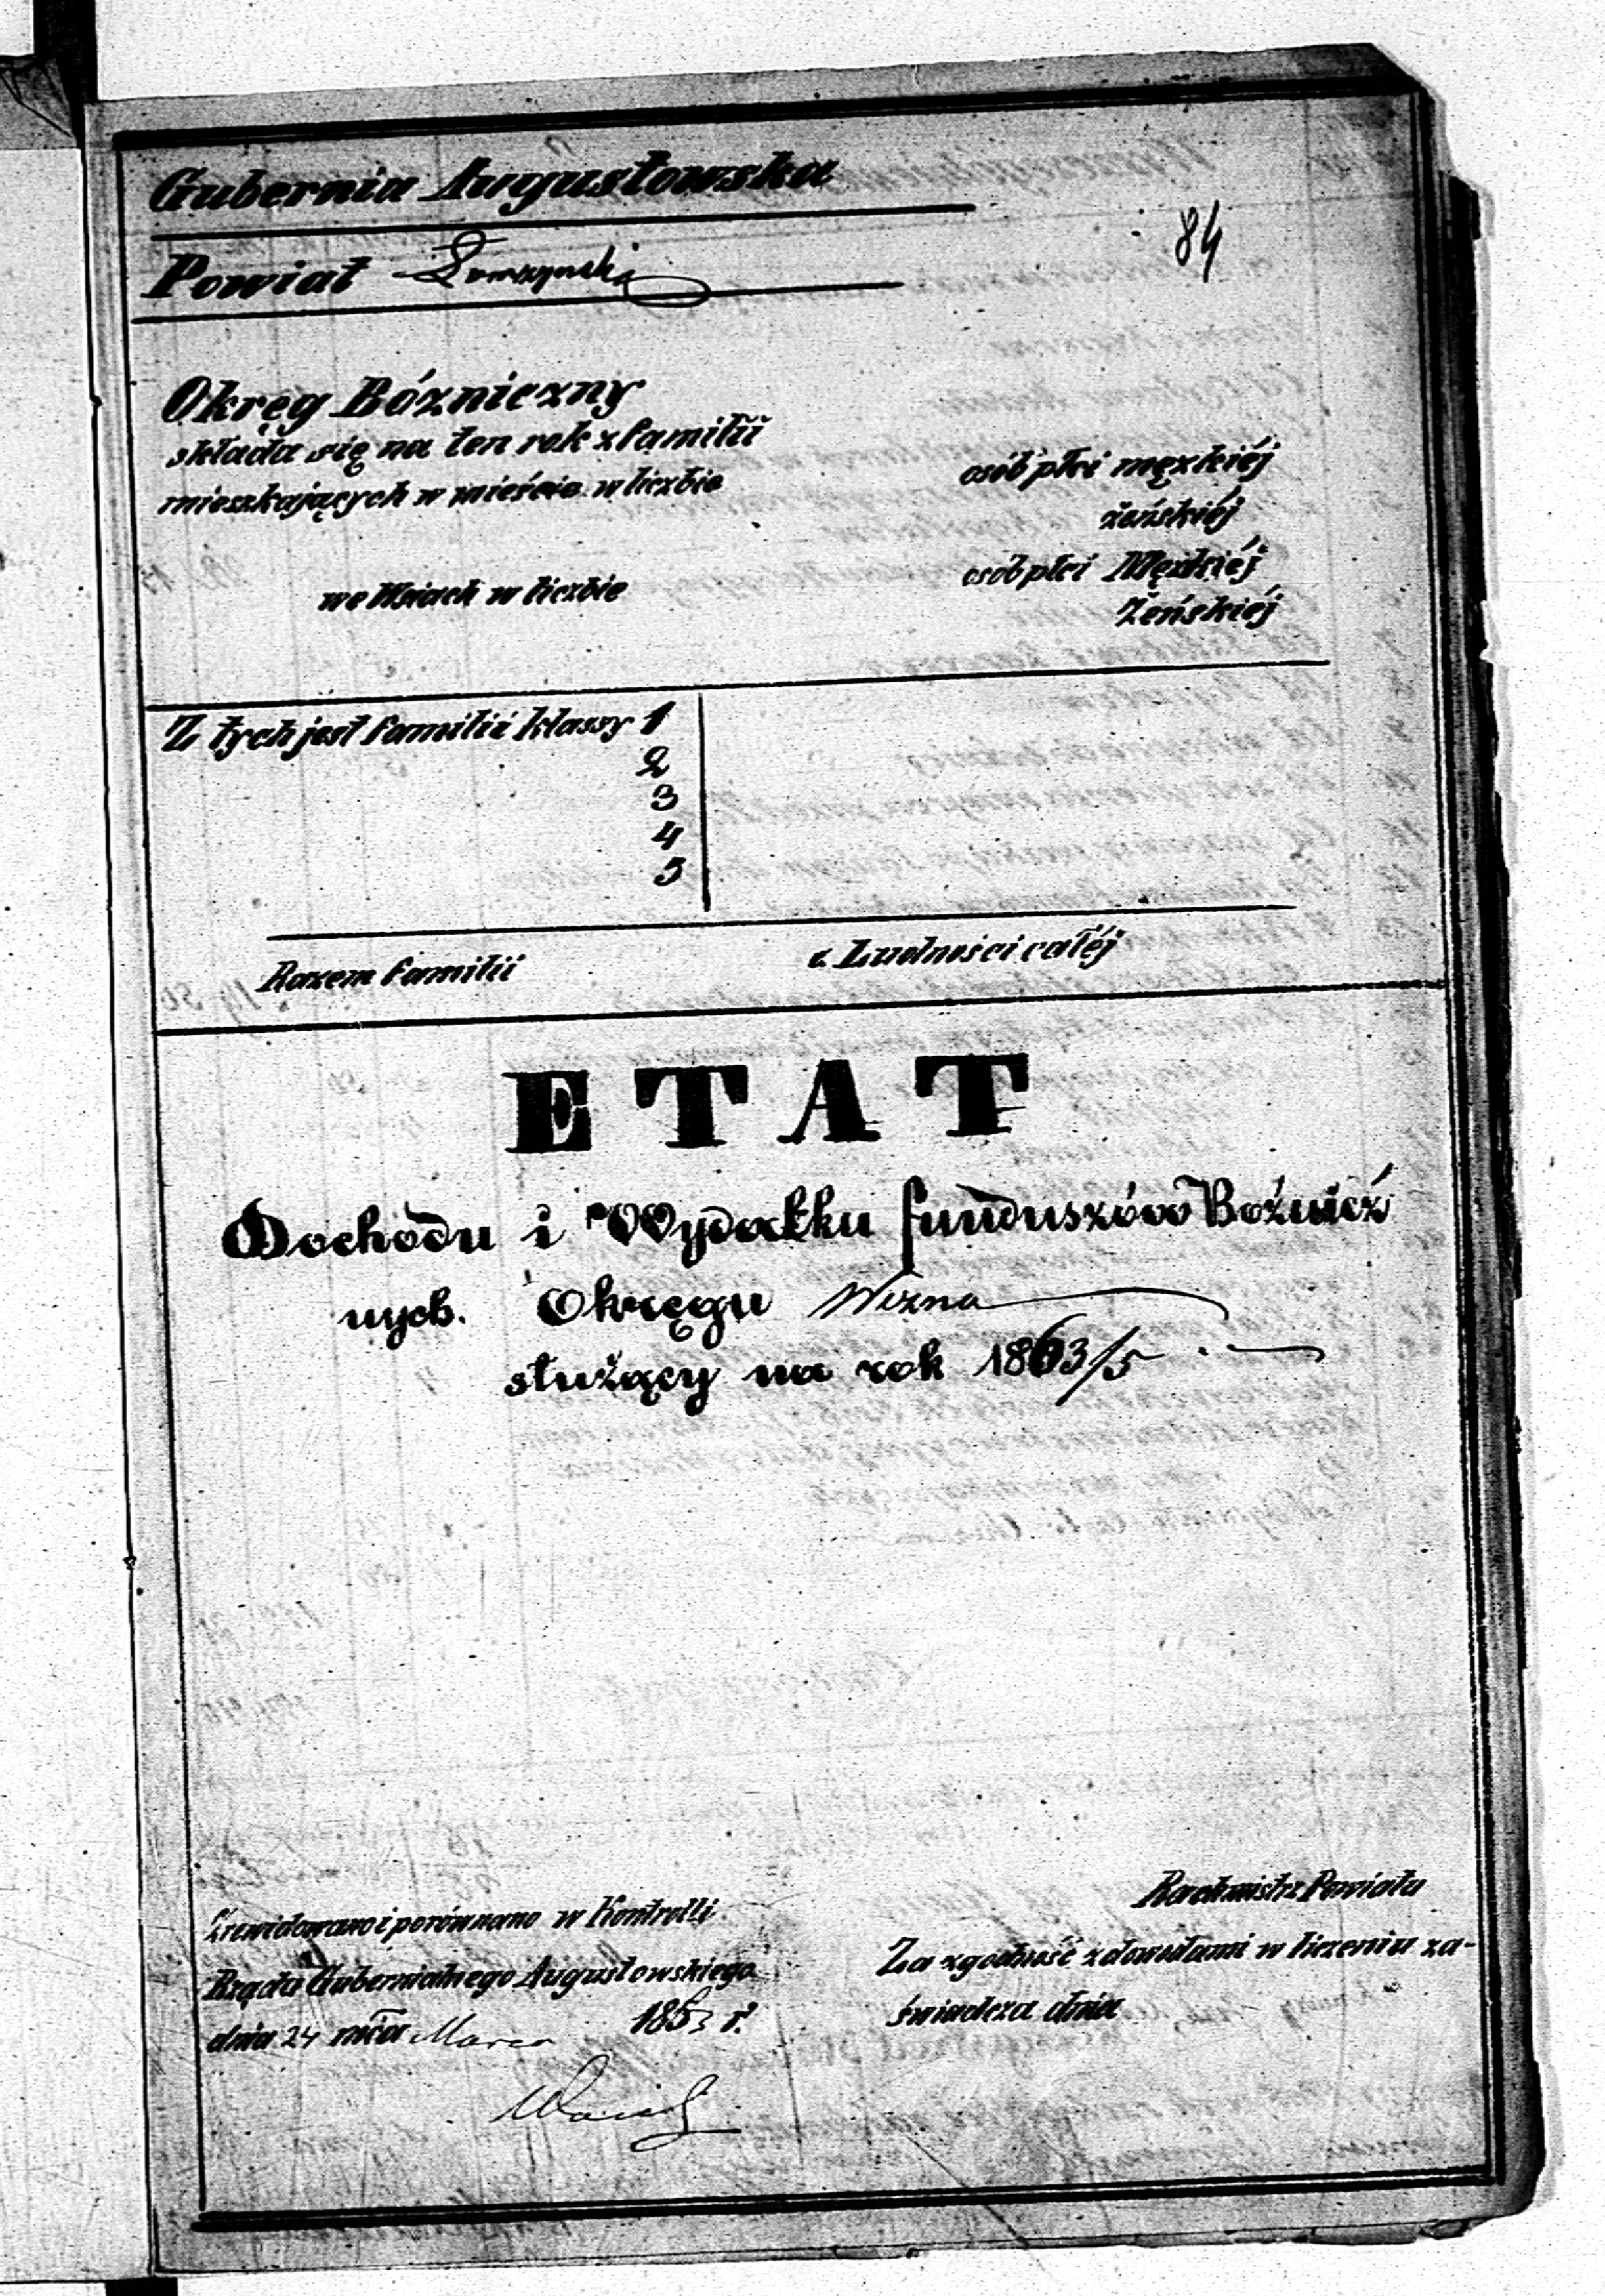 Gubernia Augustowska
84
Powiat Łomzynski
Okręg Bóżniczny
składa się na ten rok z familii
mieszkających w mieście w liczbie osób płci męzkiéj
żeńskiéj
we Wsiach w liczbie osób płci Męzkiéj
Żeńskiéj
Z tych jest familii klassy 1
2
3
4
5
Razem familii z Ludności całéj
ETAT
Dochodu i Wydatku funduszów Boźnicz
nych. Okręgu Wizna
służący na rok 1863/5
Rachmistrz Powiatu
Zrewidowano i porównano w Kontrolli
Za zgodność z dowodami w liczeniu za-
Rządu Gubernialnego Augustowskiego
świadcza dnia
dnia 24 mca Marca 1863 r.